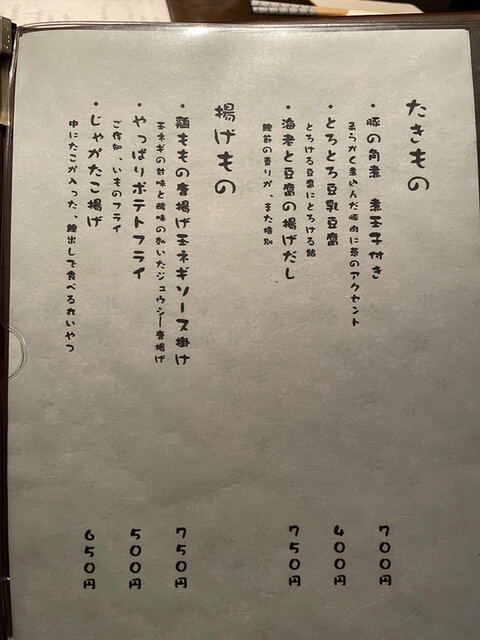 たきもの
・豚の角煮 煮玉子付き 700円
柔らかく煮込んだ豚肉に茶のアクセント
・とろとろ豆乳豆腐 400円
とろける豆腐にとろける餡
・海老と豆腐の揚げだし 750円
鰹節の香りが、また格別
揚げもの
・鶏ももの唐揚げ玉ネギソース掛け 750円
玉ネギの甘味と酸味の効いたジュウシー唐揚げ
・やっぱりポテトフライ 500円
ご存知、いものフライ
・じゃがたこ揚げ 650円
中にたこが入った、鰹出しで食べる丸いやつ